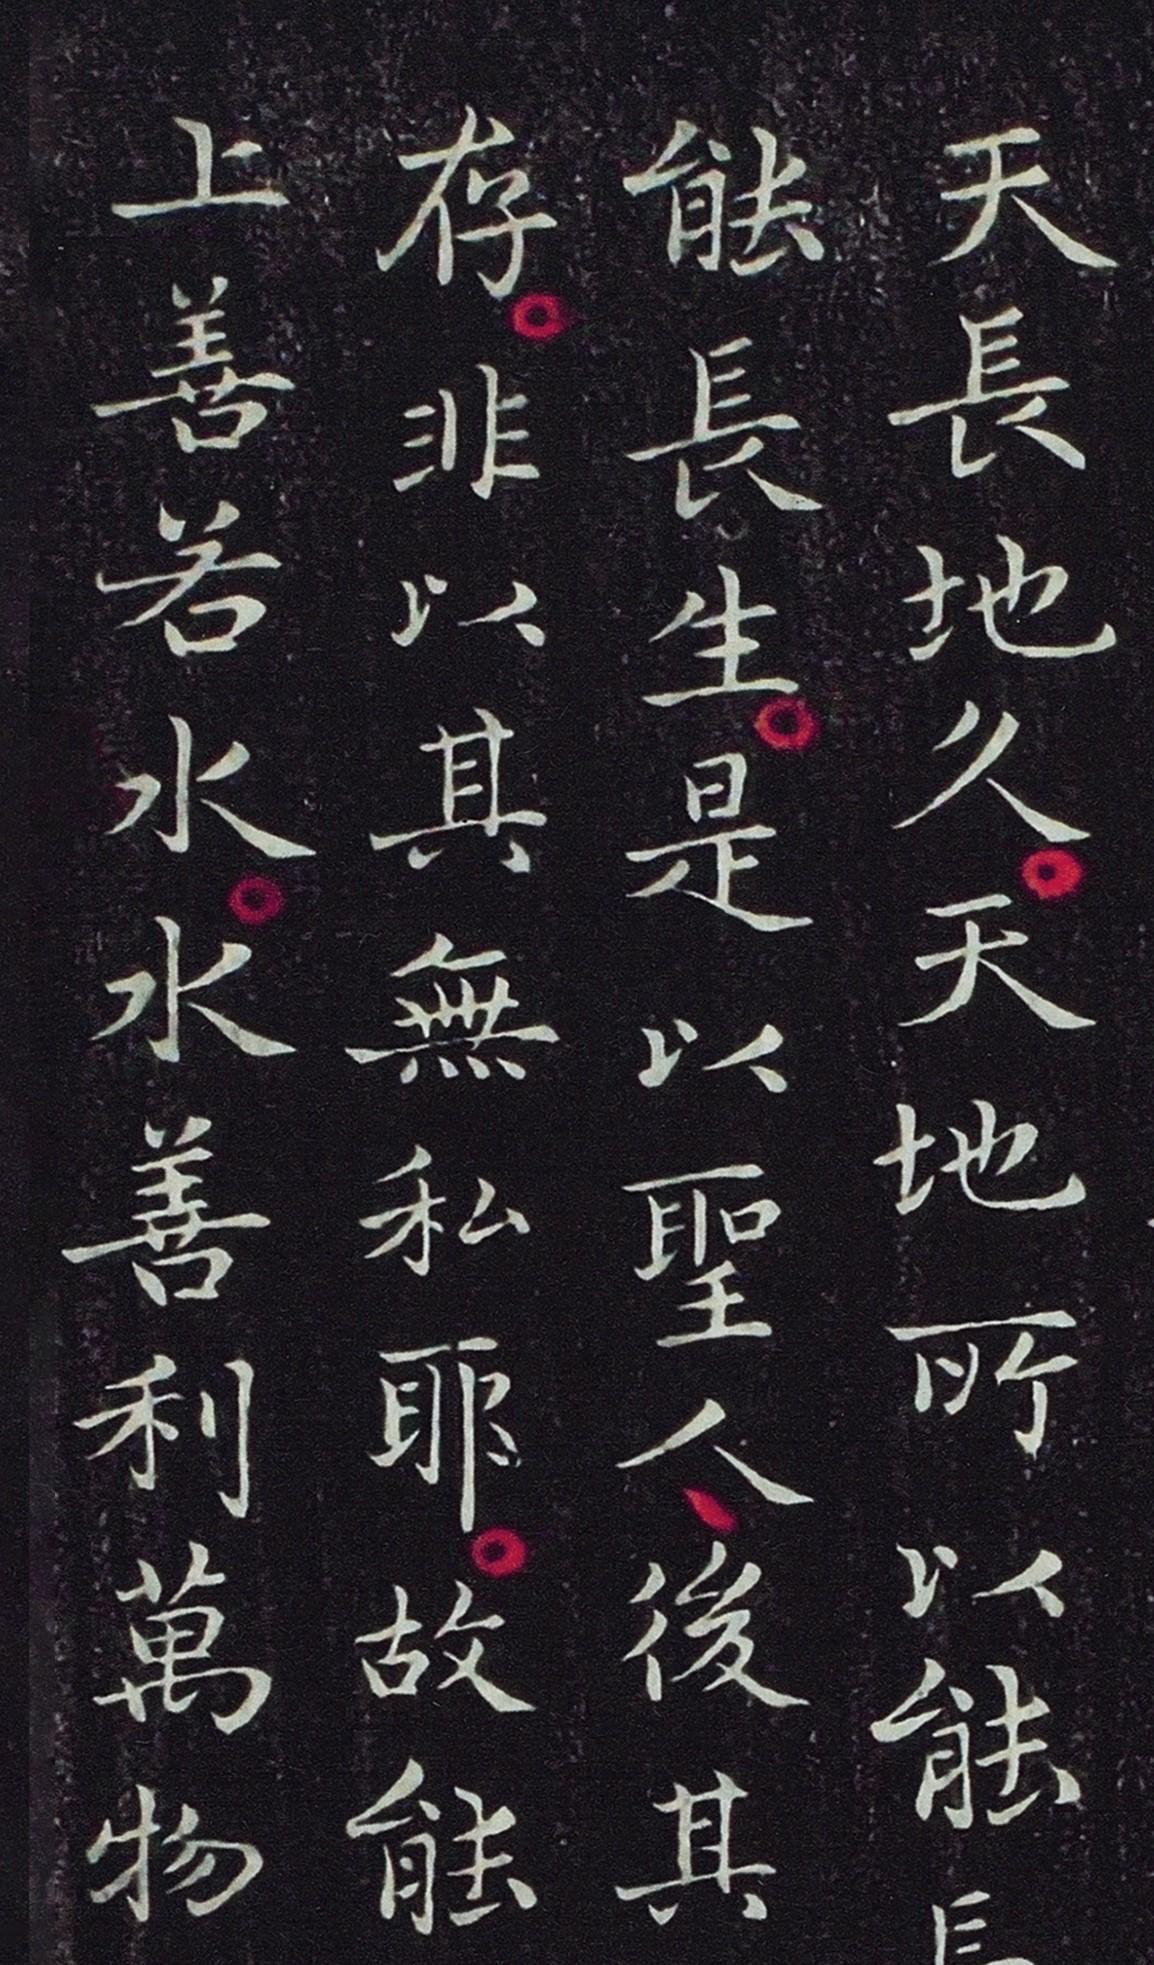 天長地久天地所以能長
能長生是以聖人後其
存非以其無私耶故能
上善若水水善利萬物